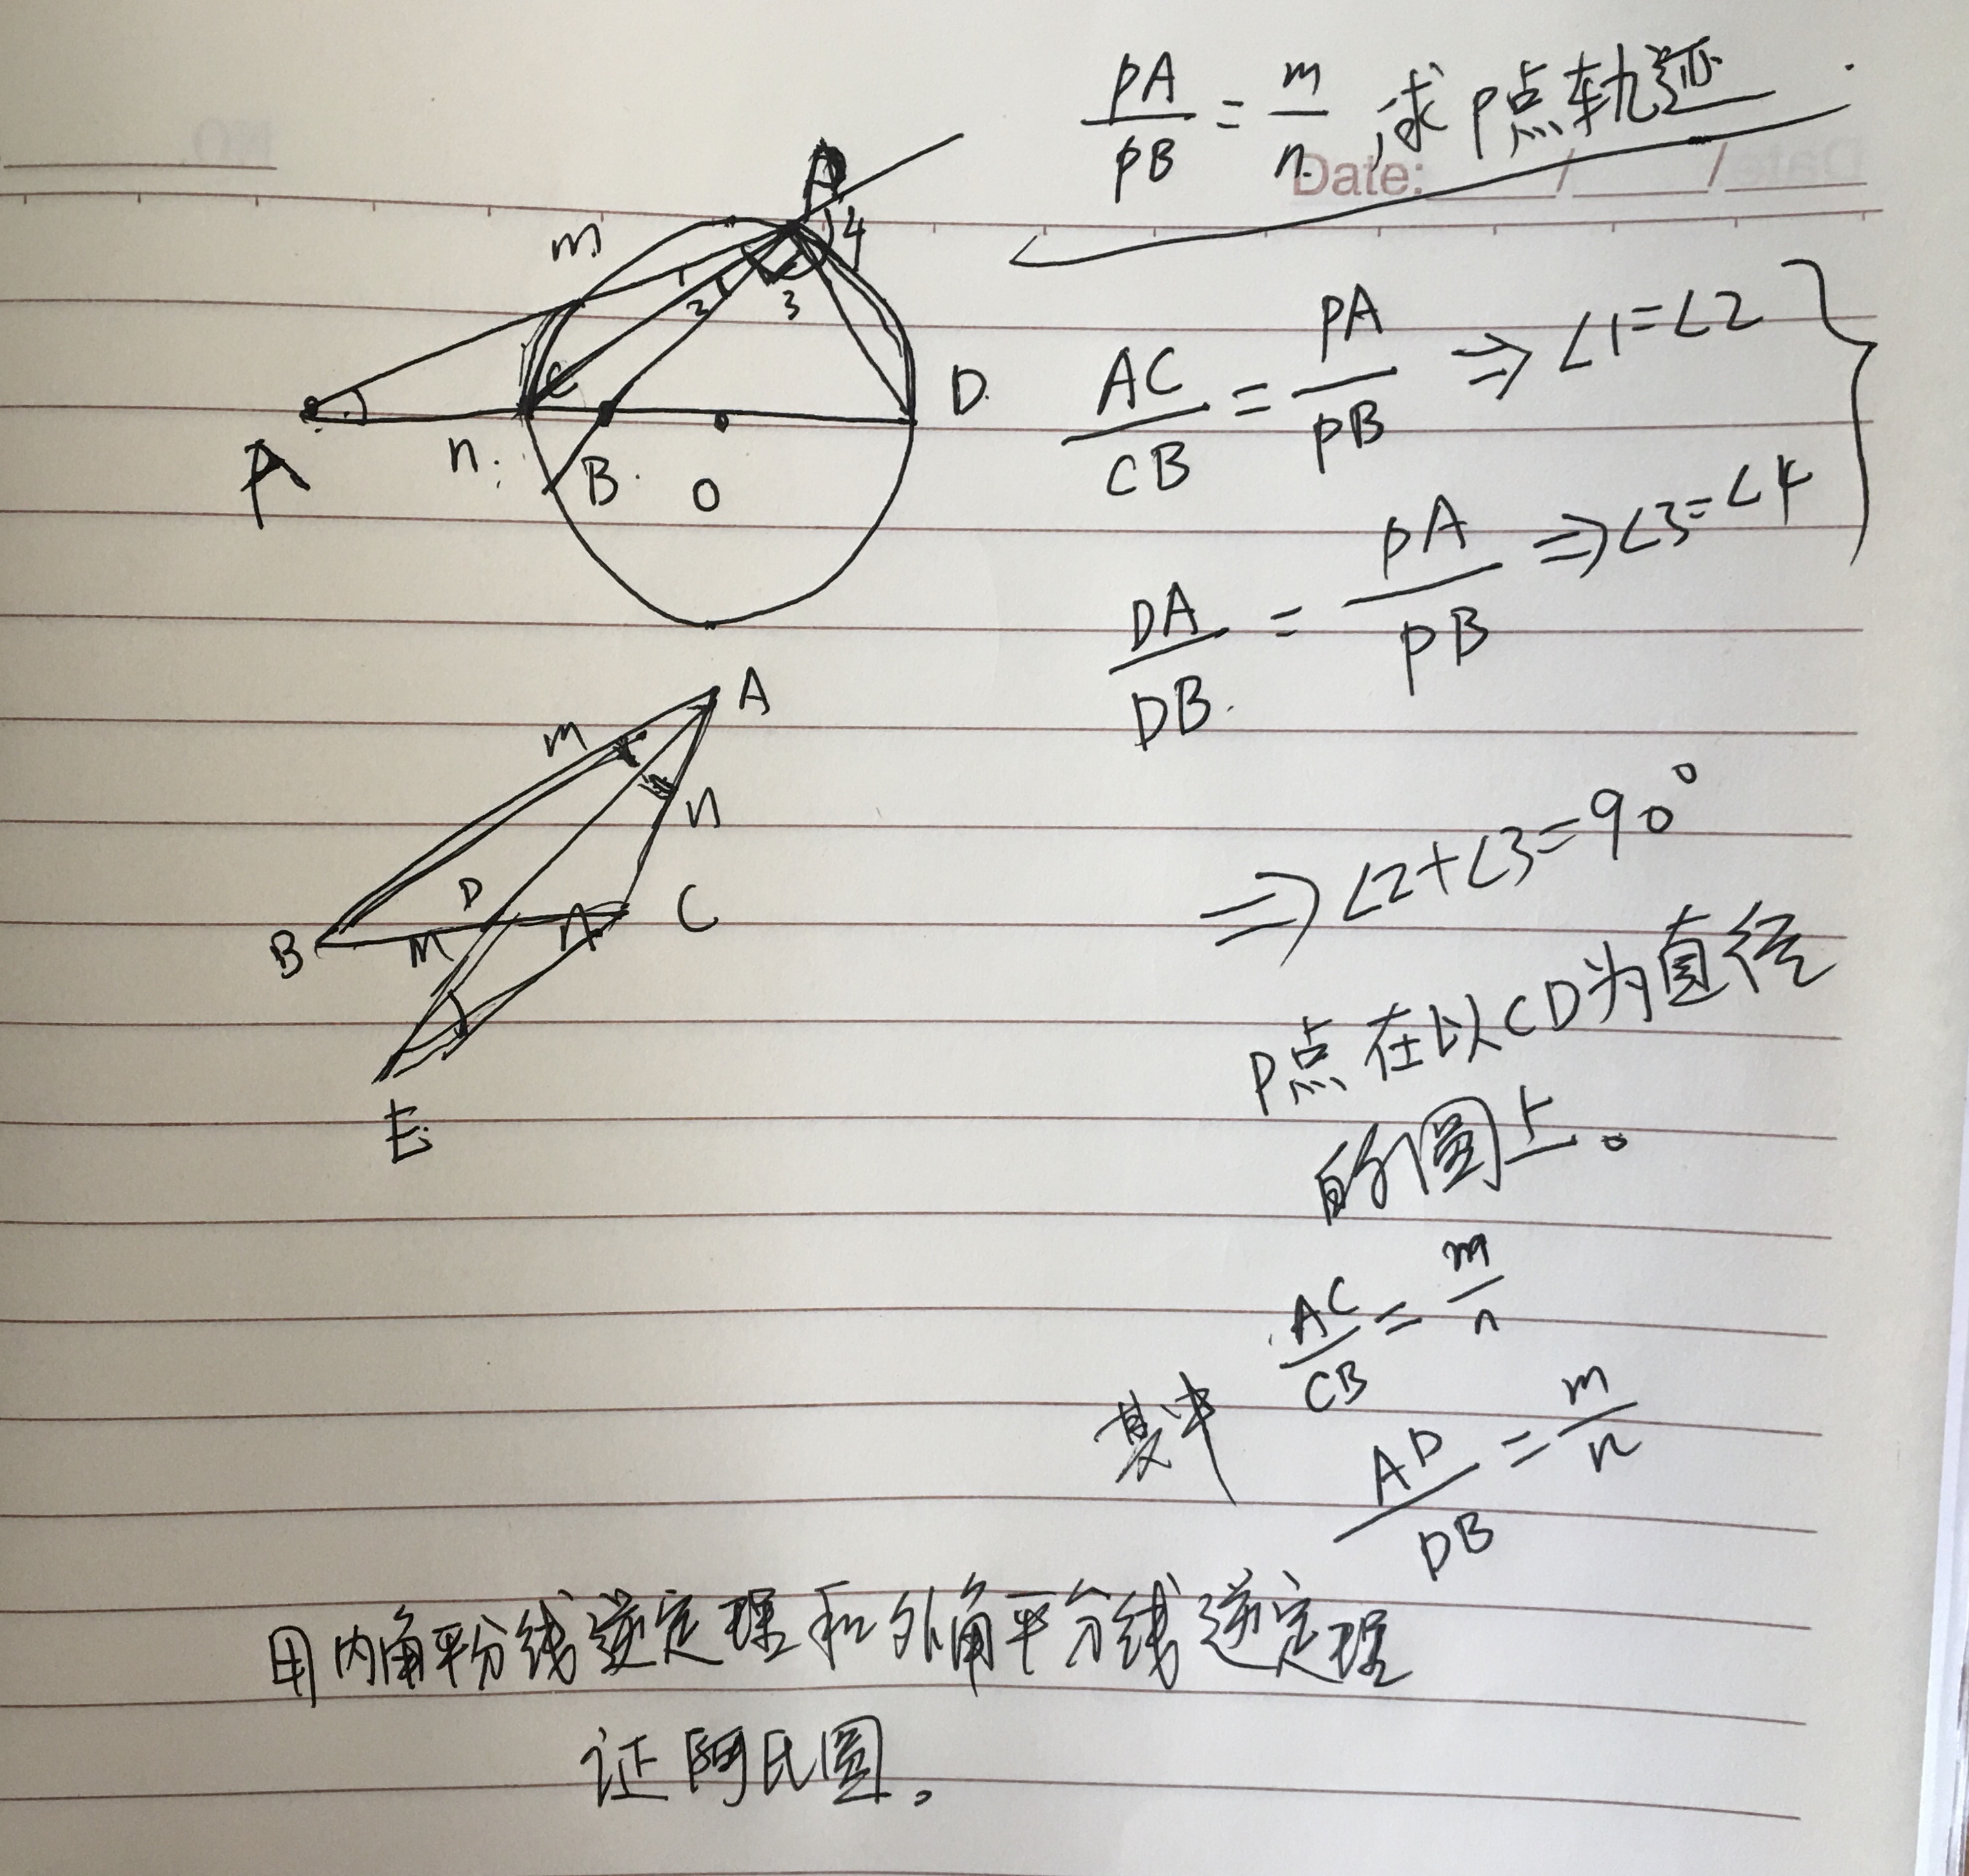 PA/PB = m/n, 求P点轨迹.
Date: / /
P
m
4
1
2
3
C
D
A
n
B
O
AC/CB = PA/PB ⇒ ∠1=∠2
DA/DB = PA/PB ⇒ ∠3=∠4
A
m
n
D
B
m
n
C
E
⇒ ∠2+∠3=90°
P点在以CD为直径
的圆上。
AC/CB = m/n
其中
AD/DB = m/n
用内角平分线逆定理和外角平分线逆定理
证阿氏圆。